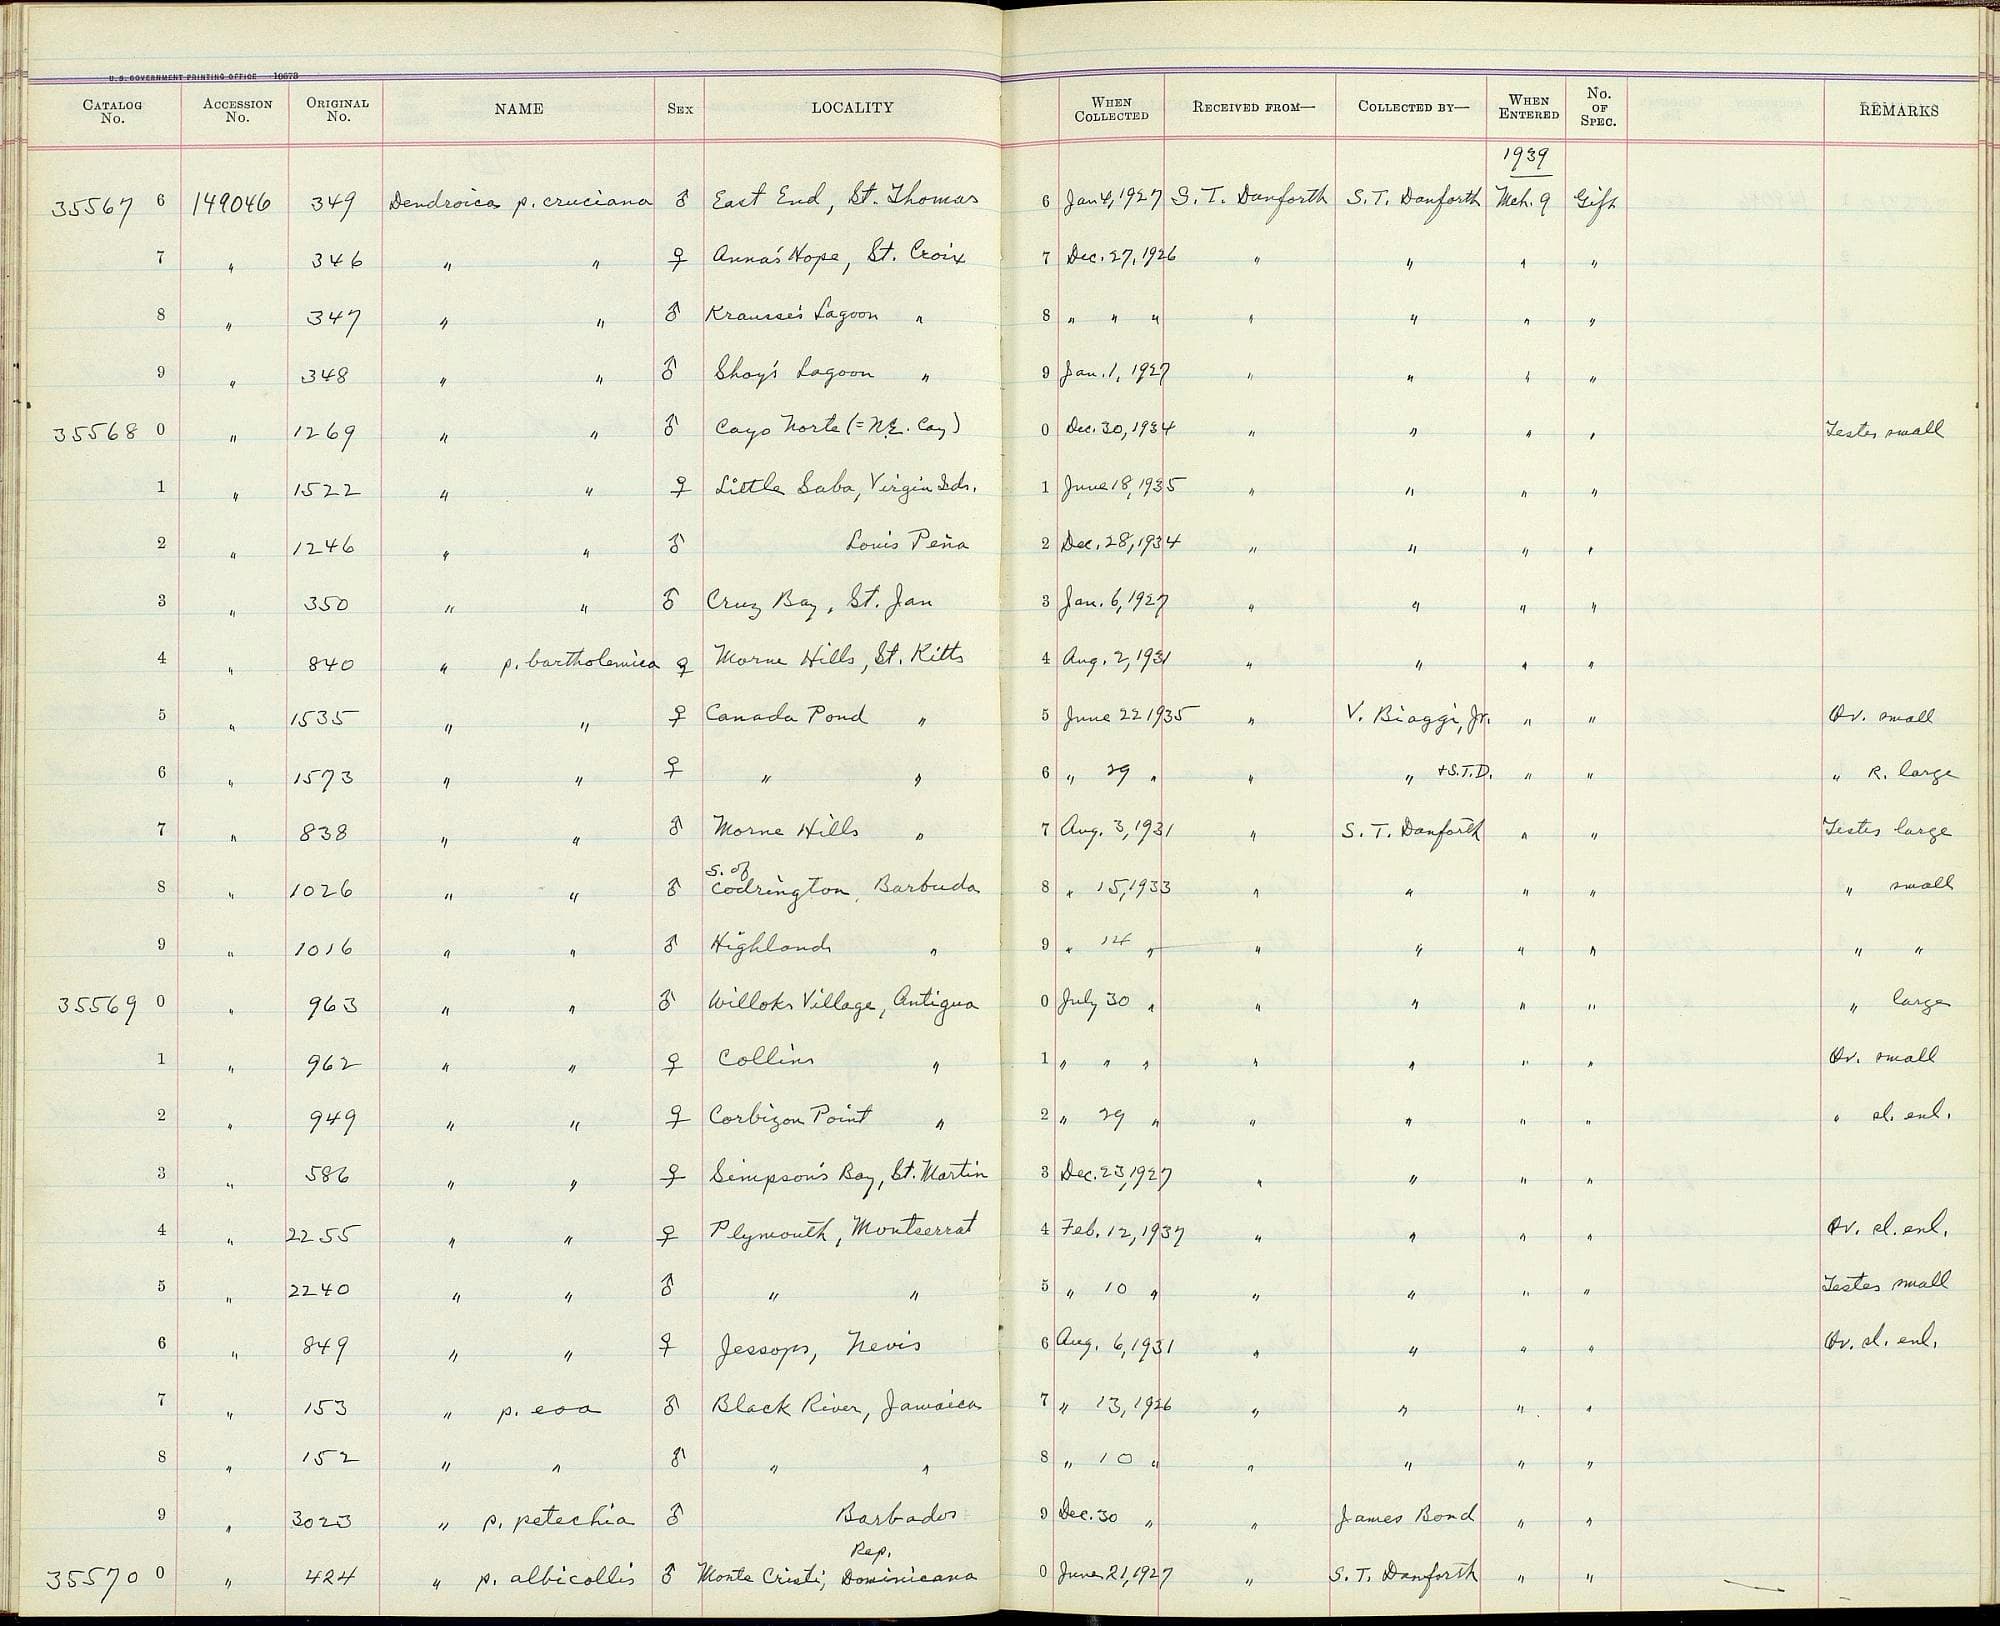 U. S. GOVERNMENT PRINTING OFFICE 10673
CATALOG No. ACCESSION No. ORIGINAL No. NAME SEX LOCALITY WHEN COLLECTED RECEIVED FROM— COLLECTED BY— WHEN ENTERED No. OF SPEC. REMARKS
1939
35567 6 149046 349 Dendroica p. cruciana ♂ East End, St. Thomas 6 Jan 4, 1927 S. T. Danforth S. T. Danforth Mch. 9 Gift
7 " 346 " " ♀ Anna's Hope, St. Croix 7 Dec. 27, 1926 " " " "
8 " 347 " " ♂ Krausse's Lagoon " 8 " " " " " " "
9 " 348 " " ♂ Shoy's Lagoon " 9 Jan. 1, 1927 " " " "
35568 0 " 1269 " " ♂ Cayo Norte (= N.E. Cay) 0 Dec. 30, 1934 " " " " Testes small
1 " 1522 " " ♀ Little Saba, Virgin Ids. 1 June 18, 1935 " " " "
2 " 1246 " " ♂ Louis Peña 2 Dec. 28, 1934 " " " "
3 " 350 " " ♂ Cruz Bay, St. Jan 3 Jan. 6, 1927 " " " "
4 " 840 " p. bartholemica ♀ Morne Hills, St. Kitts 4 Aug. 2, 1931 " " " "
5 " 1535 " " ♀ Canada Pond " 5 June 22 1935 " V. Biaggi, Jr. " " Ov. small
6 " 1573 " " ♀ " " 6 " 29 " " " + S.T.D. " " " R. large
7 " 838 " " ♂ Morne Hills " 7 Aug. 3, 1931 " S. T. Danforth " " Testes large
8 " 1026 " " ♂ S. of Codrington, Barbuda 8 " 15, 1933 " " " " " small
9 " 1016 " " ♂ Highlands " 9 " 14 " " " " " " "
35569 0 " 963 " " ♂ Willoks Village, Antigua 0 July 30 " " " " " " large
1 " 962 " " ♀ Collins " 1 " " " " " " " Ov. small
2 " 949 " " ♀ Corbizon Point " 2 " 29 " " " " " " sl. enl.
3 " 586 " " ♀ Simpson's Bay, St. Martin 3 Dec. 23, 1927 " " " "
4 " 2255 " " ♀ Plymouth, Montserrat 4 Feb. 12, 1937 " " " " Ov. sl. enl.
5 " 2240 " " ♂ " " 5 " 10 " " " " " Testes small
6 " 849 " " ♀ Jessops, Nevis 6 Aug. 6, 1931 " " " " Ov. sl. enl.
7 " 153 " p. eoa ♂ Black River, Jamaica 7 " 13, 1926 " " " "
8 " 152 " " ♂ " " 8 " 10 " " " " "
9 " 3023 " p. petechia ♂ Barbados 9 Dec. 30 " " James Bond " "
35570 0 " 424 " p. albicollis ♂ Monte Cristi, Rep. Dominicana 0 June 21, 1927 " S. T. Danforth " "